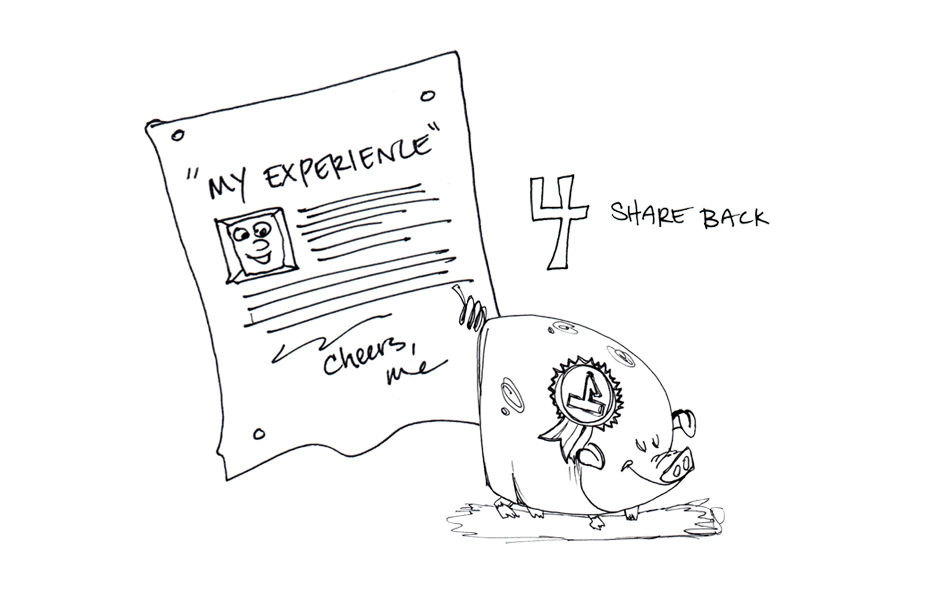 "MY EXPERIENCE"
cheers,
me
4 SHARE BACK
1